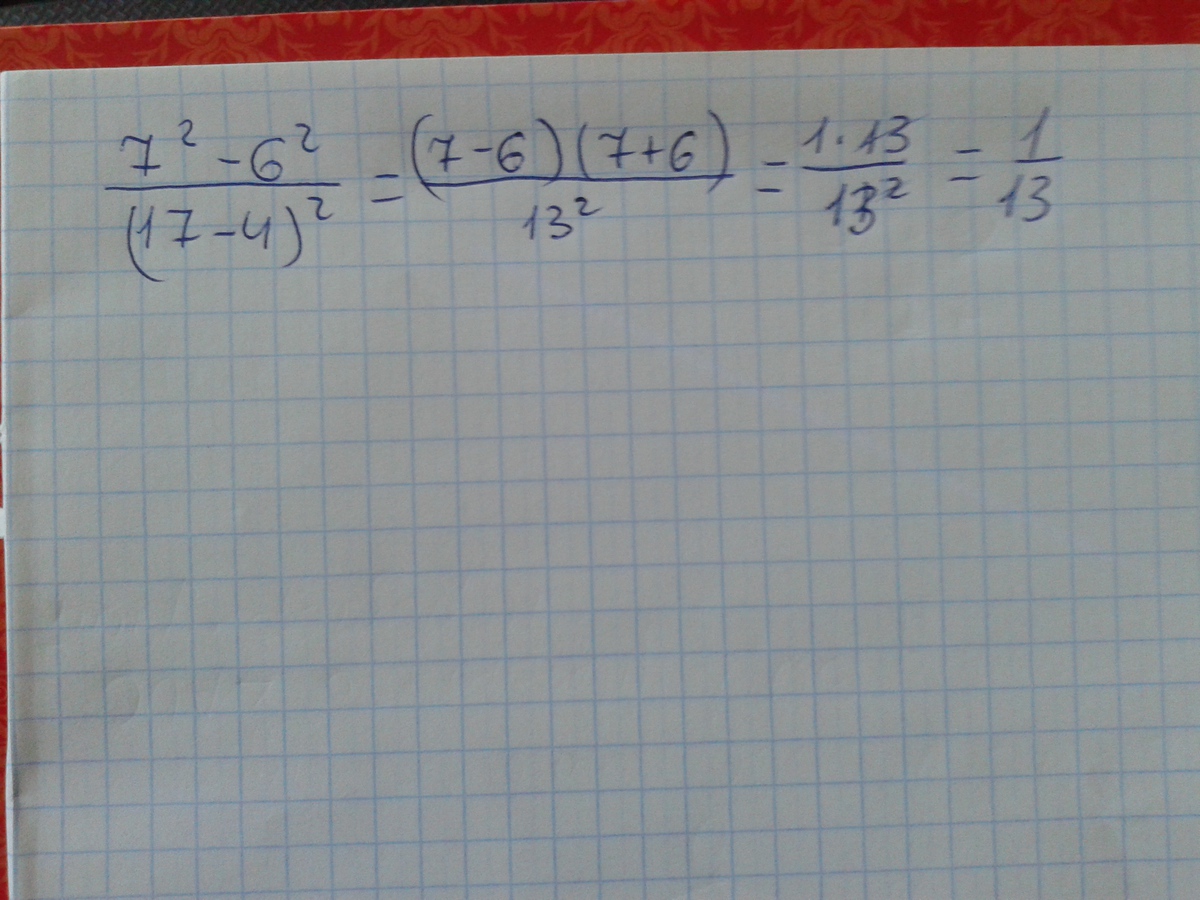 \frac{7^2-6^2}{(17-4)^2} = \frac{(7-6)(7+6)}{13^2} = \frac{1 \cdot 13}{13^2} = \frac{1}{13}